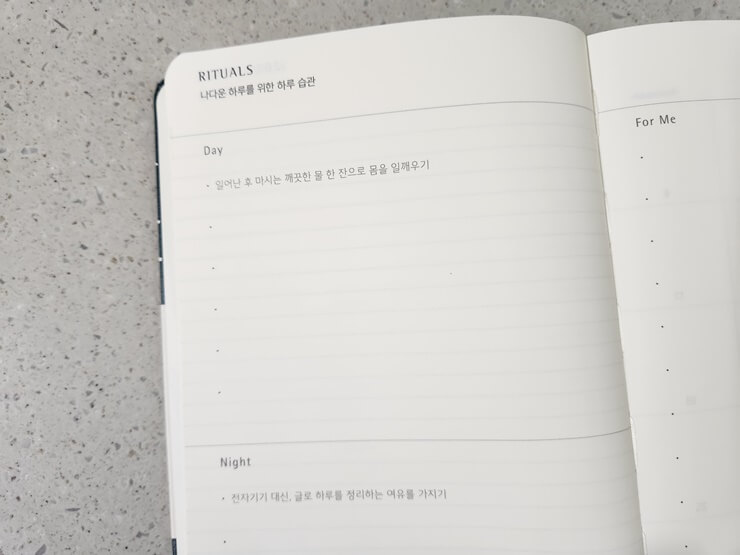 RITUALS
나다운 하루를 위한 하루 습관
Day
· 일어난 후 마시는 깨끗한 물 한 잔으로 몸을 일깨우기
Night
· 전자기기 대신, 글로 하루를 정리하는 여유를 가지기
For Me